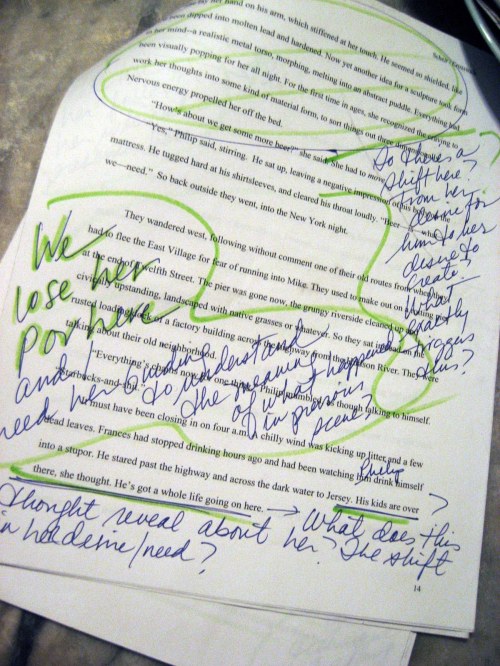 her hand on his arm, which stiffened at her touch. He seemed so shielded, like
been dipped into molten lead and hardened. Now yet another idea for a sculpture
her mind--a realistic metal torso, morphing, melting into an abstract puddle. Everything had
been visually popping for her all night. For the first time in ages, she recognized the
work her thoughts into some kind of material form, to sort things out
Nervous energy propelled her off the bed.
"How's about we get some more beer?" she said. She had to move.
"Yes," Philip said, stirring. He sat up, leaving a negative impression
mattress. He tugged hard at his shirtsleeves, and cleared his throat loudly. "Beer
we—need." So back outside they went, into the New York night.
So there's a
shift here?
from her
desire for
him to her
desire to
create?
What
exactly
triggers
this?
They wandered west, following without comment one of their old routes from when
had to flee the East Village for fear of running into Mike. They used to make out on
at the end of Twelfth Street. The pier was gone now, the grungy riverside cleared up
civically upstanding, landscaped with native grasses or whatever. So they sat
rusted loading of a factory building across the highway from the Hudson River. They were
talking about their old neighborhood.
We
lose her
POV here
and/
need her
to understand
the meaning
of what happened
in previous
scene?
"Everything's Philip mumbled as though talking to himself.
"Starbucks-and-
It must have been closing in on four a.m. A chilly wind was kicking up litter and a few
dead leaves. Frances had stopped drinking hours ago and had been watching him drink himself
Philip
into a stupor. He stared past the highway and across the dark water to Jersey. His kids are over
there, she thought. He's got a whole life going on here.
?
→ What does this
thought reveal about her? The shift
in her desire/need?
14